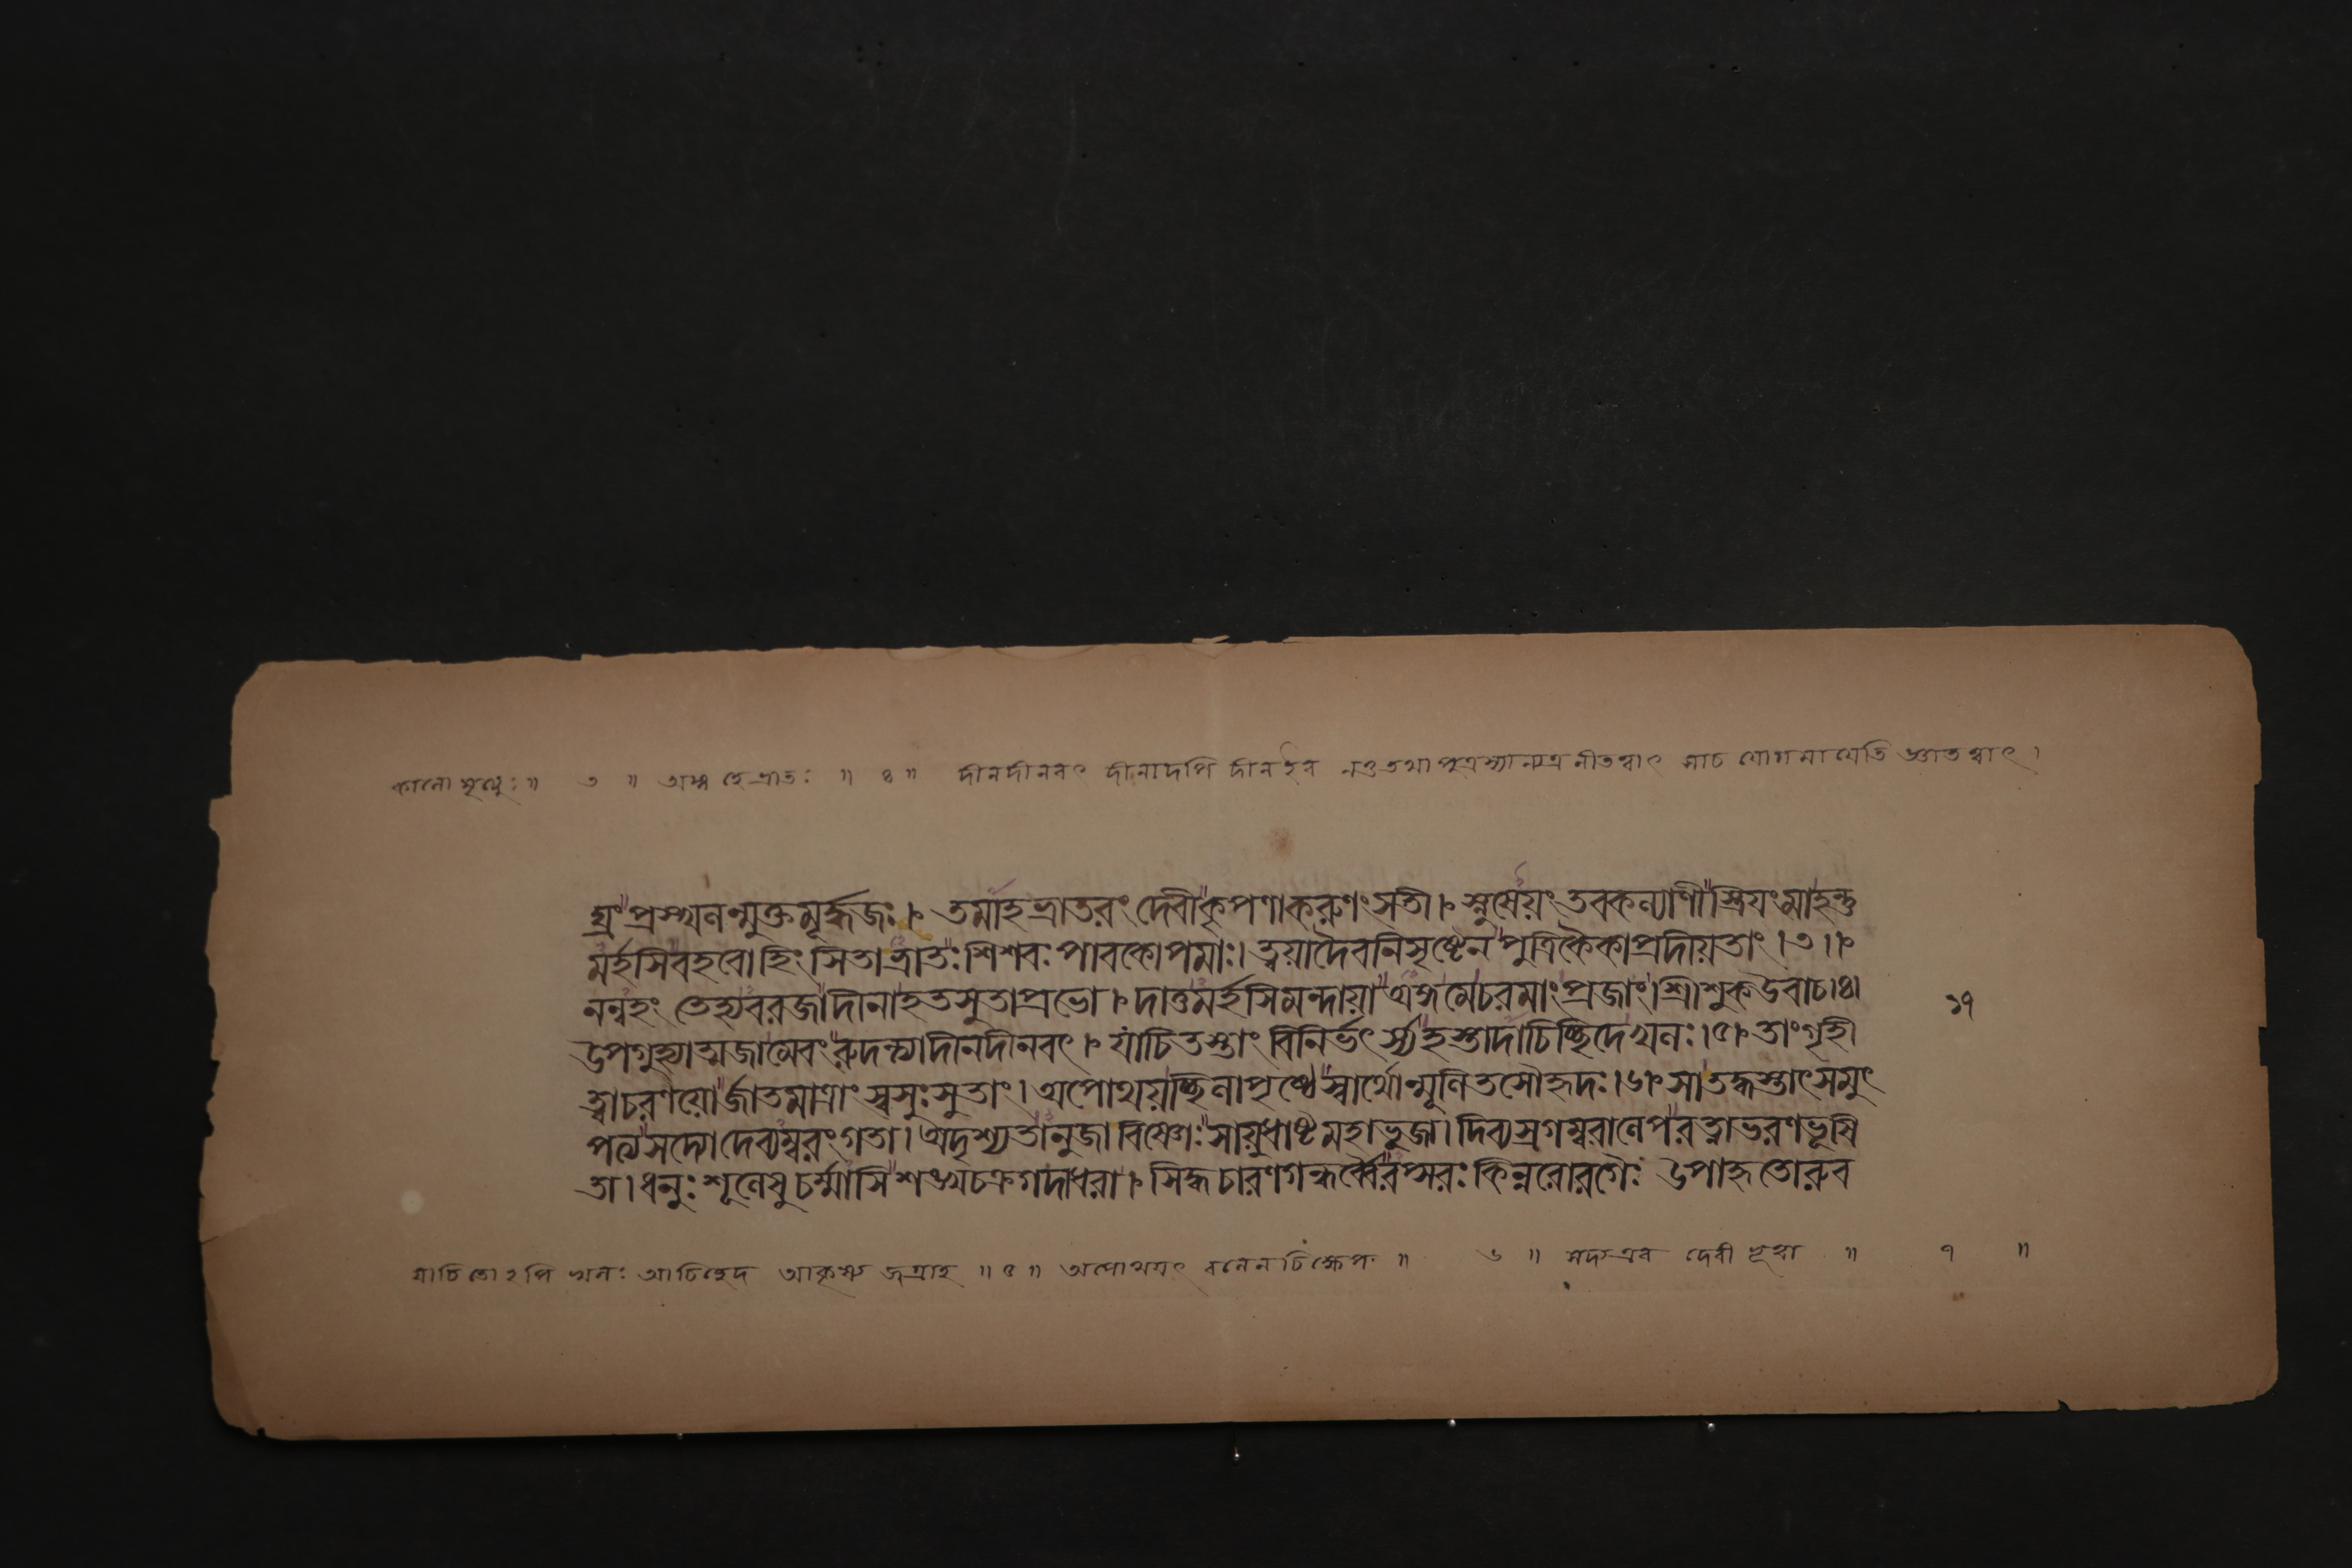 কালো মৃত্যুঃ ॥ ৩ ॥ অঙ্গ হে ভ্রাতঃ ॥ ৪ ॥ দীনদীনবৎ দীনাদপি দীন ইব নতু তথা পুত্রস্যান্যত্র নীতত্বাৎ সাচ যোগমায়েতি জ্ঞাতত্বাৎ ।
গ্রং প্রস্খলন্মুক্তমূর্দ্ধজঃ । তমাহভ্রাতরং দেবীকৃপণাকরুণংসতী । স্নুষেয়ং তবকল্যাণীস্ত্রিয়ংমাহন্তু
মর্হসিবহবোহিংসিতাভ্রাতঃশিশবঃপাবকোপমাঃ। ত্বয়াদৈবনিসৃষ্টেনপুত্রিকৈকাপ্রদীয়তাং ।৩।
নন্বহং তেহ্যবরজাদীনাহতসুতাপ্রভো । দাতুমর্হসিমন্দায়াঅঙ্গমেচরমাংপ্রজাং।শ্রীশুকউবাচ।৪।
উপগুহ্যাত্মজামেবংরুদন্ত্যাদীনদীনবৎ । যাচিতস্তাং বিনির্ভৎর্স্যহস্তাদাচিচ্ছিদেখলঃ ।৫। তাংগৃহী
ত্বাচরণয়োর্জাতমাত্রাং স্বসুঃসুতাং । অপোথয়চ্ছিলাপৃষ্ঠেস্বার্থোন্মূলিতসৌহৃদঃ ।৬। সাতদ্ধস্তাৎসমুৎ
পত্যসদ্যোদেব্যম্বরংগতা । অদৃশ্যতানুজাবিষ্ণোঃসায়ুধাষ্টমহাভুজা । দিব্যস্রগম্বরালেপরত্নাভরণভূষি
তা । ধনুঃশূলেষুচর্ম্মাসিশঙ্খচক্রগদাধরা । সিদ্ধচারণগন্ধর্ব্বৈরপ্সরঃকিন্নরোরগৈঃ উপাহৃতোরুব
১৭
যাচিতোঽপি খলঃ আচিচ্ছিদে আকৃষ্য জগ্রাহ ॥ ৫ ॥ অপোথয়ৎ বলেন চিক্ষেপ ॥ ৬ ॥ সদ্যএব দেবী ভূত্বা ॥ ৭ ॥